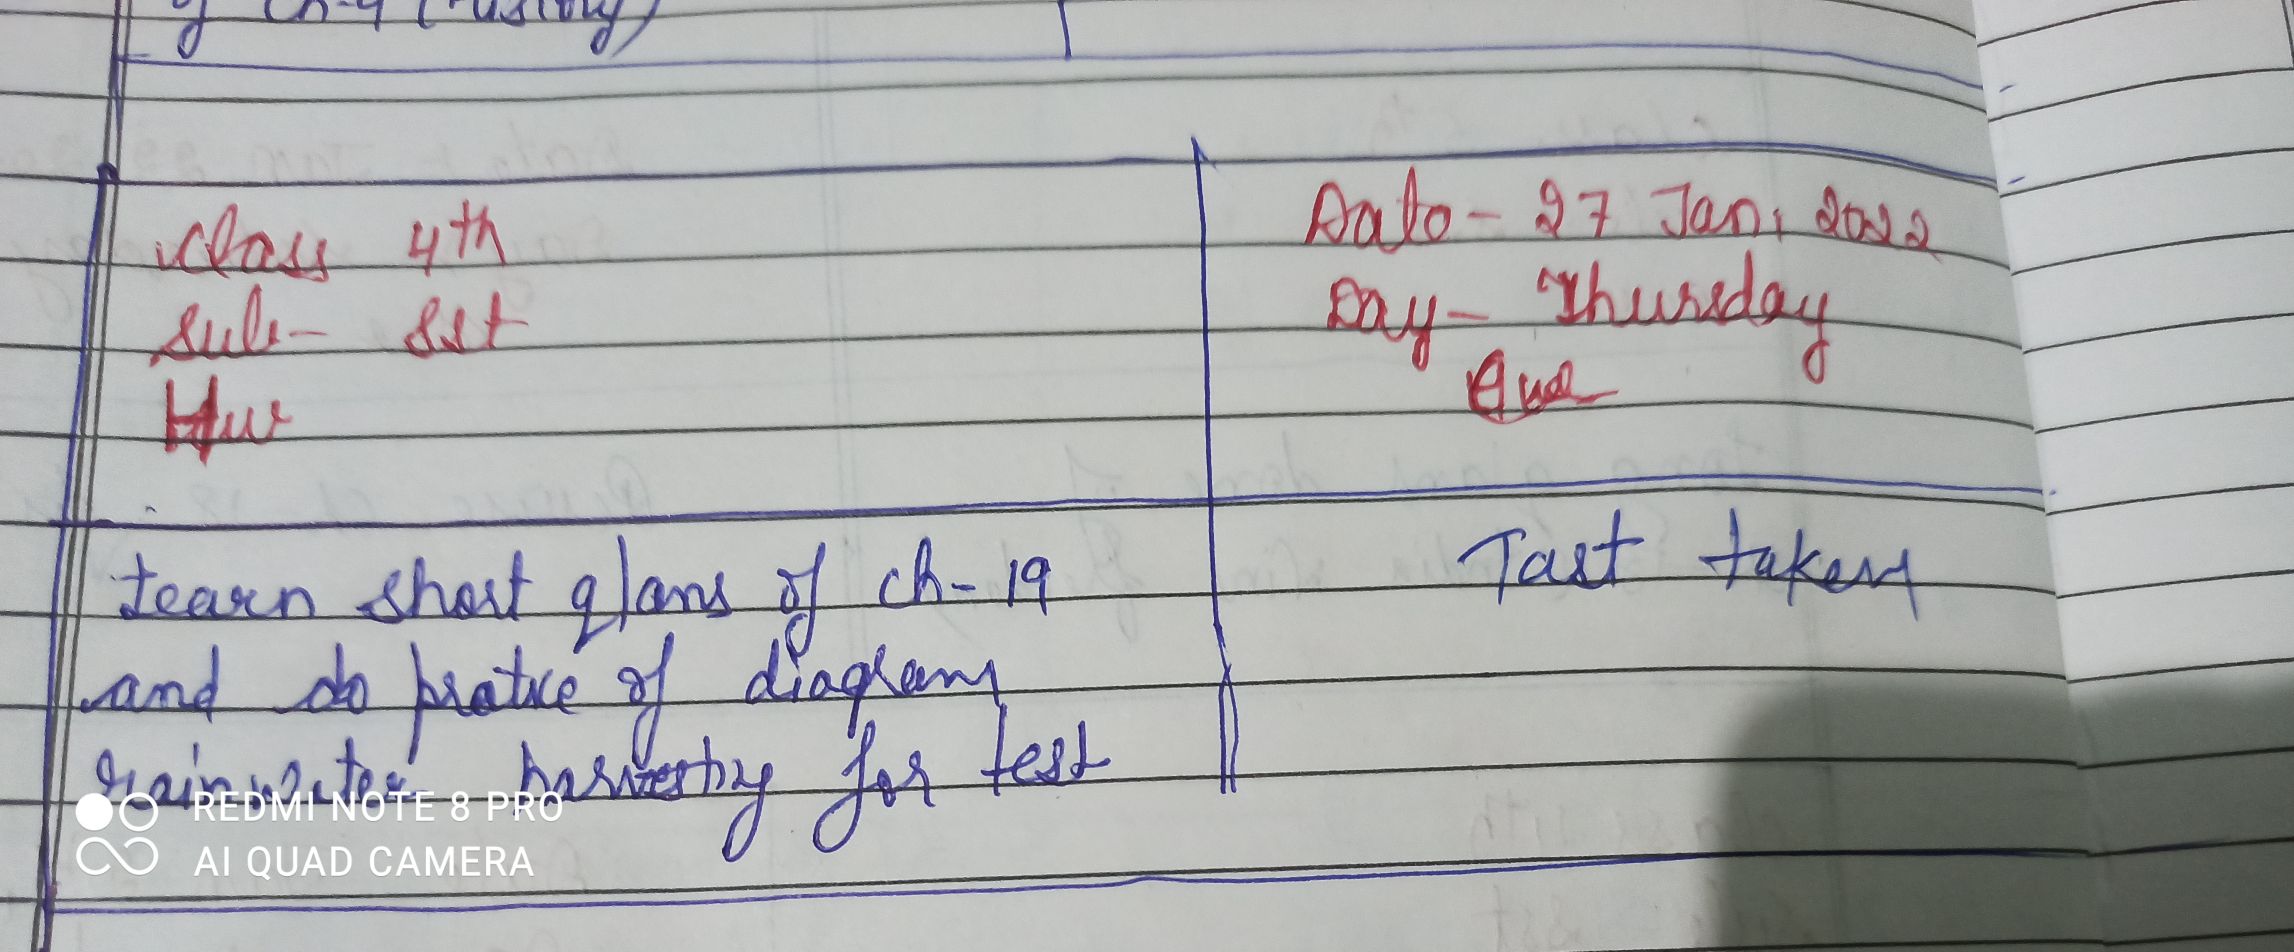 of Ch-4 (History)
Class 4th
Sub- Sst
Hw
Date - 27 Jan, 2022
Day - Thursday
learn short q/ans of ch- 19
and do pratice of diagram
rainwater harvesting for test
Tast taken
REDMI NOTE 8 PRO
AI QUAD CAMERA